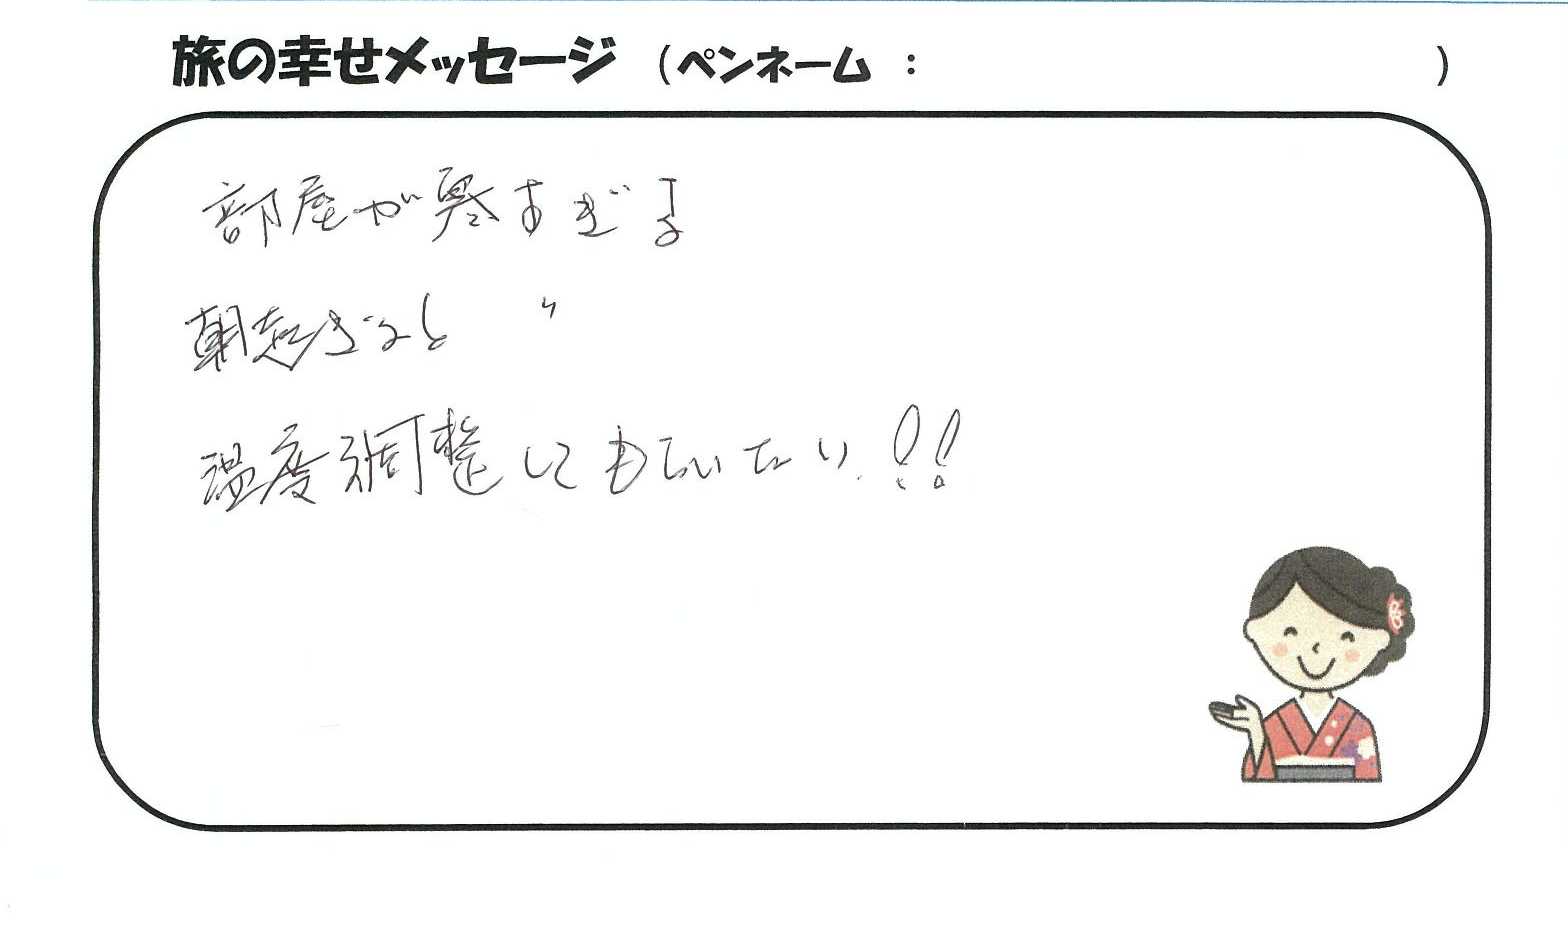 旅の幸せメッセージ （ペンネーム ： ）
部屋が寒すぎる
朝起きると 〃
温度調整してもらいたい!!